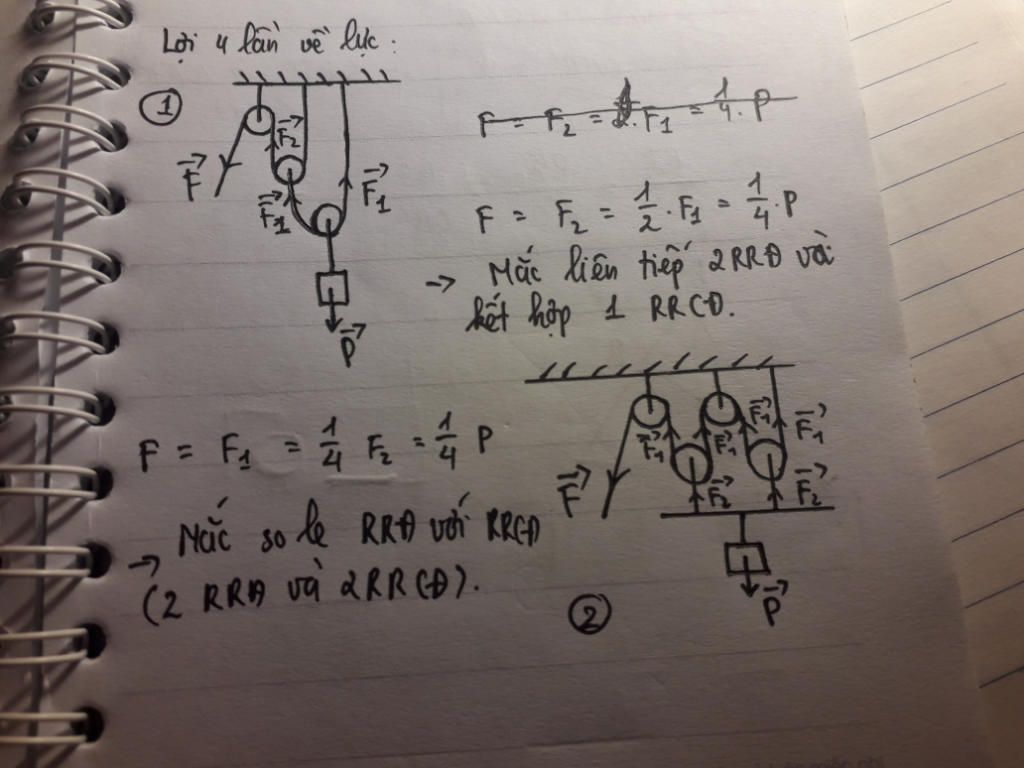 Lợi 4 lần về lực:
①
F = F₂ = 2.F₁ = 1/4.P
F = F₂ = 1/2.F₁ = 1/4.P
→ Mắc liên tiếp 2RRĐ và
kết hợp 1 RRCĐ.
F⃗
F₂⃗
F₁⃗
F₁⃗
P⃗
F = F₁ = 1/4 F₂ = 1/4 P
→ Mắc so le RRĐ với RRCĐ
(2 RRĐ và 2RRCĐ).
F⃗
F₁⃗
F₁⃗
F₁⃗
F₁⃗
F₂⃗
F₂⃗
P⃗
②